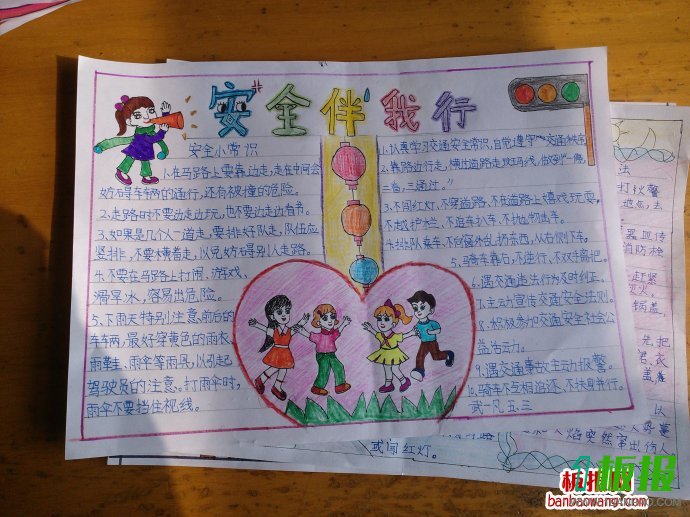 安全伴我行
安全小常识
1、在马路上要靠边走,走在中间会
妨碍车辆的通行,还有被撞的危险。
2、走路时不要边走边玩,也不要边走边看书。
3、如果是几个人一道走,要排好队走,队伍应
竖排,不要横着走,以免妨碍别人走路。
4、不要在马路上打闹、游戏、
滑旱冰,容易出危险。
5、下雨天特别注意前后的
车辆,最好穿黄色的雨衣、
雨鞋、雨伞等雨具,以引起
驾驶员的注意。打雨伞时,
雨伞不要挡住视线。
1、认真学习交通安全常识,自觉遵守"交通秩序
2、靠路边行走,横过道路走斑马线,做到"一慢
二看、三通过。"
3、不闯红灯,不穿道路,不在道路上嬉戏玩耍,
不越护栏、不追车扒车、不抛物击车。
4、排队乘车、不向窗外乱扔东西,从右侧下车。
5、骑车靠右,不逆行、不双手离把。
6、遇交通违法行为及时纠正。
7、主动宣传交通安全法则。
8、积极参加交通安全社会
公益活动。
9、遇交通事故主动报警。
10、骑车不互相追逐、不扶身并行。
武一凡 五、三
或闯红灯。
法
打火警
器宣传
消防栓
赶紧
灭火。
锅盖,
把
衣
盖着
以
焰突然窜出伤人
板报
banbaowang.com